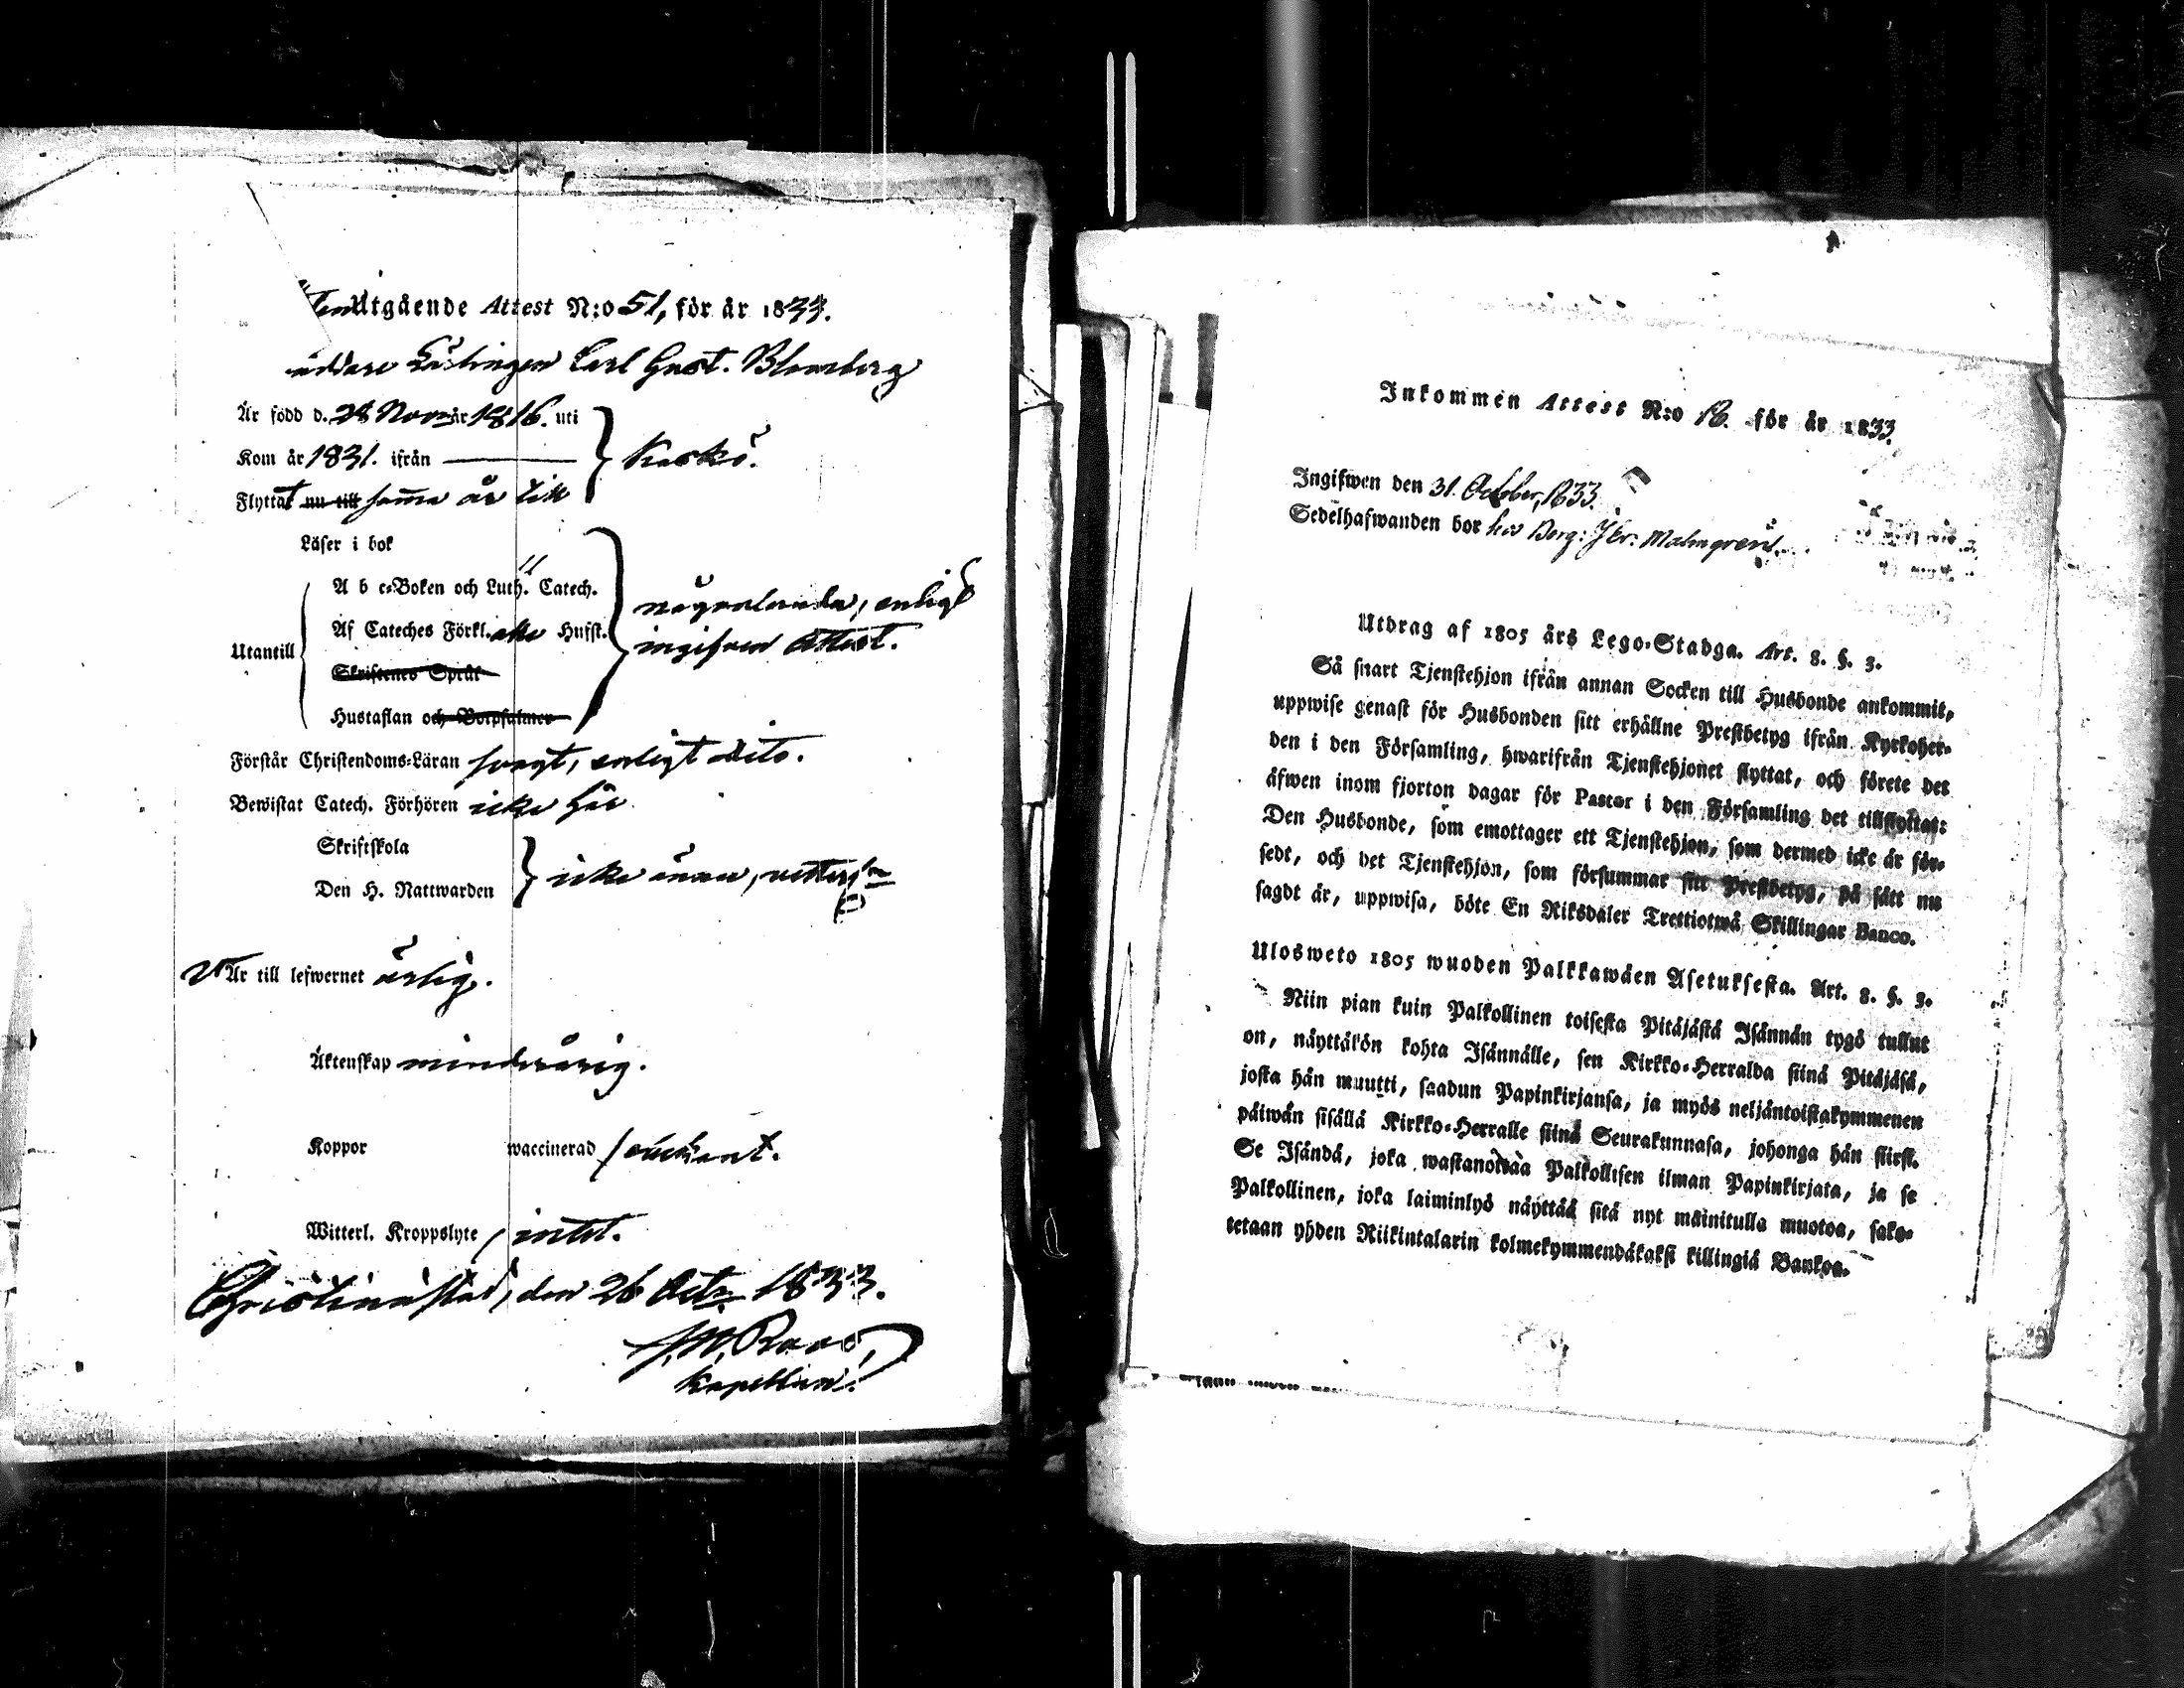 Utgående Attest N:o 51, för år 1833.
Lärlingen Carl Gust. Blomberg
Är född d. 28 Nov. år 1816. uti
Kom år 1831. ifrån
Kaskö.
Flyttat nu till samma år till
Läser i bok
A b c-Boken och Luth. Catech.
Af Cateches Förkl. alla Hufst.
någorlunda, enligt
ingifven Attest.
Utantill
Skriftenes Språk
Hustaflan och Botpsalmer
Förstår Christendoms-Läran svagt, enligt dito.
Bewistat Catech. Förhören icke här
Skriftskola
Den H. Nattwarden
icke ännu,
Är till lefwernet ärlig.
Äktenskap minderårig.
Koppor waccinerad
Witterl. Kroppslyte, intet.
Christinæstad, den 26 Octr. 1833.
Kapellan.
Inkommen Attest N:o 18. för år 1833.
Ingifwen den 31. October, 1833.
Sedelhafwanden bor hos Borg: Jbr: Malmgren.
Utdrag af 1805 års Lego-Stadga. Art. 8. §. 3.
Så snart Tjenstehjon ifrån annan Socken till Husbonde ankommit,
uppwise genast för Husbonden sitt erhållne Prestbetyg ifrån Kyrkoher-
den i den Församling, hwarifrån Tjenstehjonet flyttat, och förete det
äfwen inom fjorton dagar för Pastor i den Församling det tillflyttat:
Den Husbonde, som emottager ett Tjenstehjon, som dermed icke är för-
sedt, och det Tjenstehjon, som försummar sitt Prestbetyg, på sätt nu
sagdt är, uppwisa, böte En Riksdaler Trettiotwå Skillingar Banco.
Ulosweto 1805 wuoden Palkkawäen Asetuksesta. Art. 8. §. 3.
Niin pian kuin Palkollinen toisesta Pitäjästä Isännän tygö tullut
on, näyttäkön kohta Isännälle, sen Kirkko-Herralda siinä Pitäjäsä,
josta hän muutti, saadun Papinkirjansa, ja myös neljäntoistakymmenen
päiwän sisällä Kirkko-Herralle siinä Seurakunnasa, johonga hän siirsi.
Se Isändä, joka wastanottaa Palkollisen ilman Papinkirjata, ja se
Palkollinen, joka laiminlyö näyttää sitä nyt mainitulla muotoa, sako-
tetaan yhden Riikintalarin kolmekymmendäkaksi killingiä Bankoa.